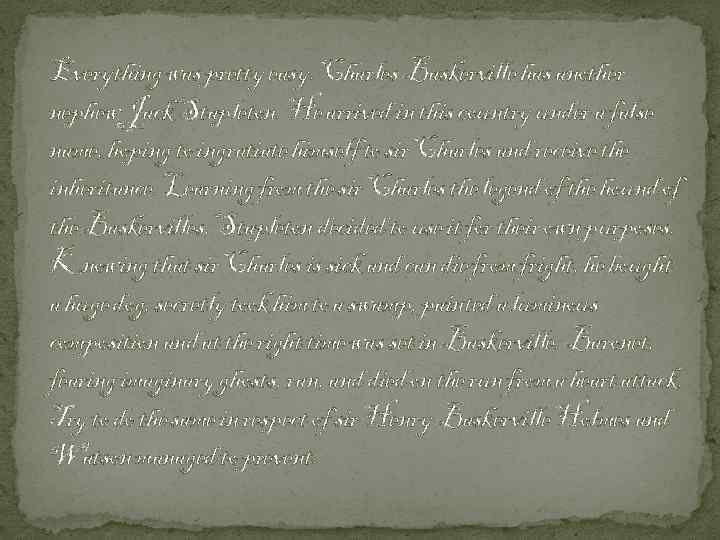 Everything was pretty easy. Charles Baskerville has another
nephew Jack Stapleton. He arrived in this country under a false
name, hoping to ingratiate himself to sir Charles and receive the
inheritance. Learning from the sir Charles the legend of the hound of
the Baskervilles, Stapleton decided to use it for their own purposes.
Knowing that sir Charles is sick and can die from fright, he bought
a huge dog, secretly took him to a swamp, painted a luminous
composition and at the right time was set in Baskerville. Baronet,
fearing imaginary ghosts, ran, and died on the run from a heart attack.
Try to do the same in respect of sir Henry Baskerville Holmes and
Watson managed to prevent.